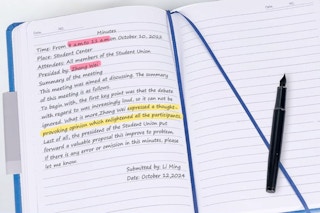 Minutes
Time: From 9 a.m. to 11 a.m. on October 10, 2023
Place: Student Center
Attendees: All members of the Student Union
Presided by: Zhang Wei
Summary of the meeting
This meeting was aimed at discussing. The summary
of this meeting is as follows.
To begin with, the first key point was that the debate
with regard to was increasingly loud, or it can not be
ignored. What is more, Zhang Wei expressed a thought-
provoking opinion which enlightened all the participants.
Last of all, the president of the Student Union put
forward a valuable proposal this improve to problem.
If there is any error or omission in this minutes, please
let me know.
Submitted by: Li Ming
Date: October 12, 2024